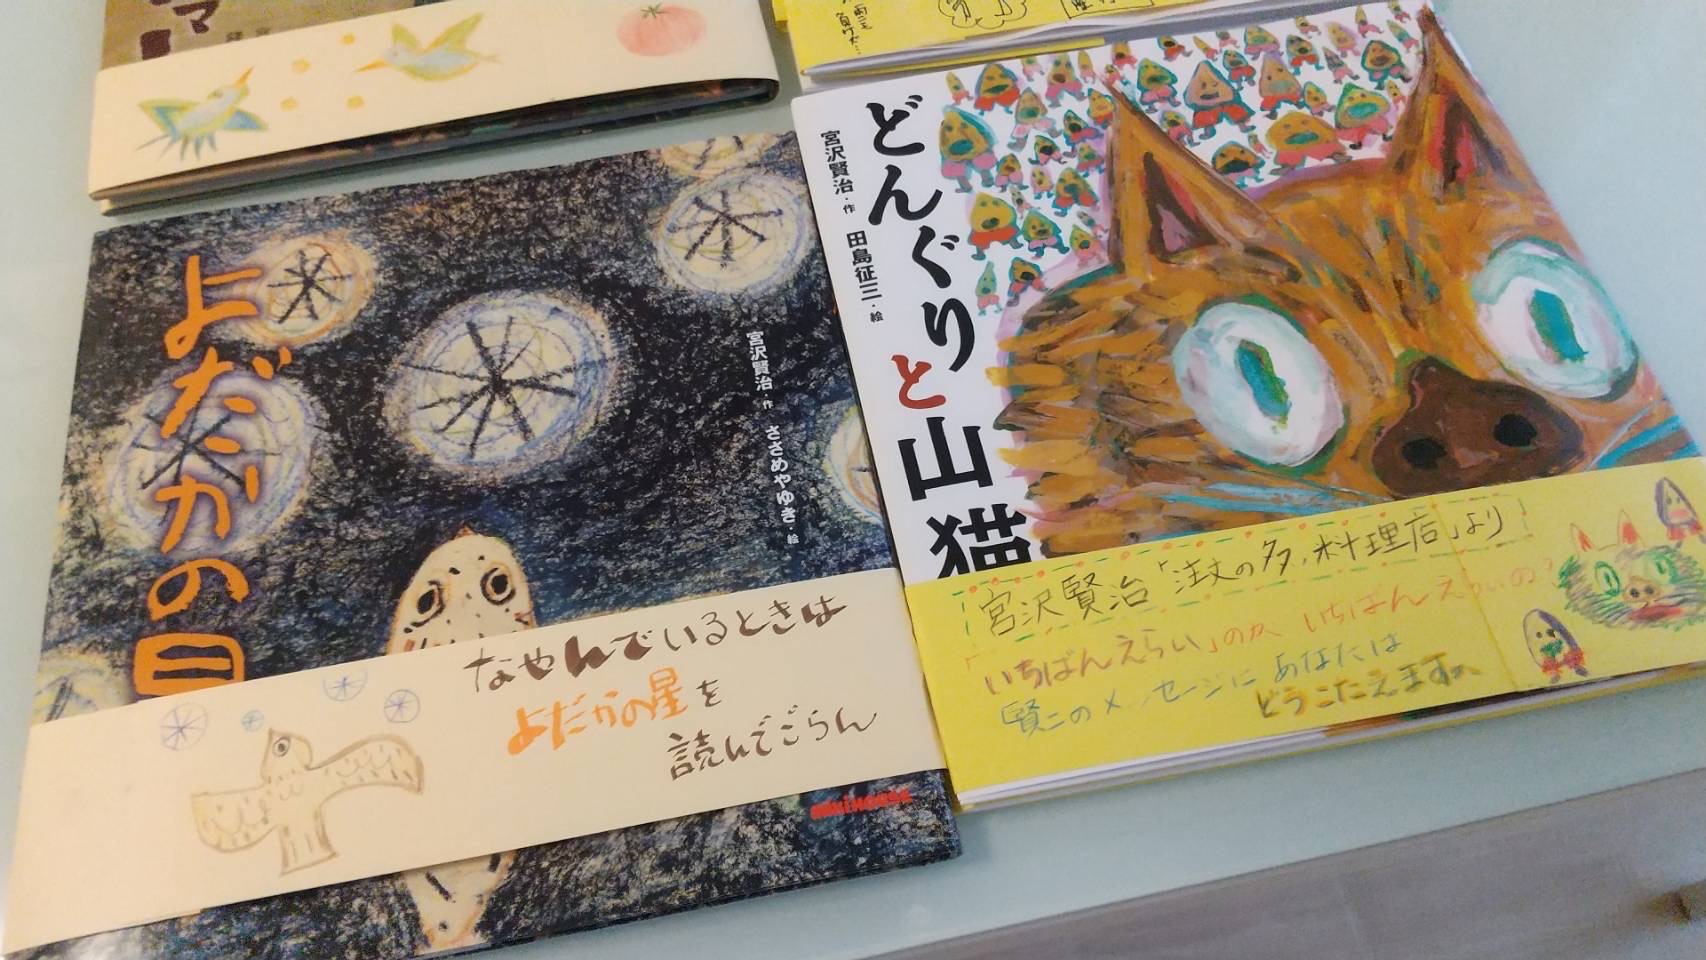 マ
雨にも
負けず…
よだかの星
宮沢賢治・作 ささめやゆき・絵
なやんでいるときは
よだかの星を
読んでごらん
MIKIHOUSE
どんぐりと山猫
宮沢賢治・作 田島征三・絵
宮沢賢治「注文の多い料理店」より
「いちばんえらい」のが、いちばんえらいの?
賢二のメッセージにあなたは
どうこたえますか、